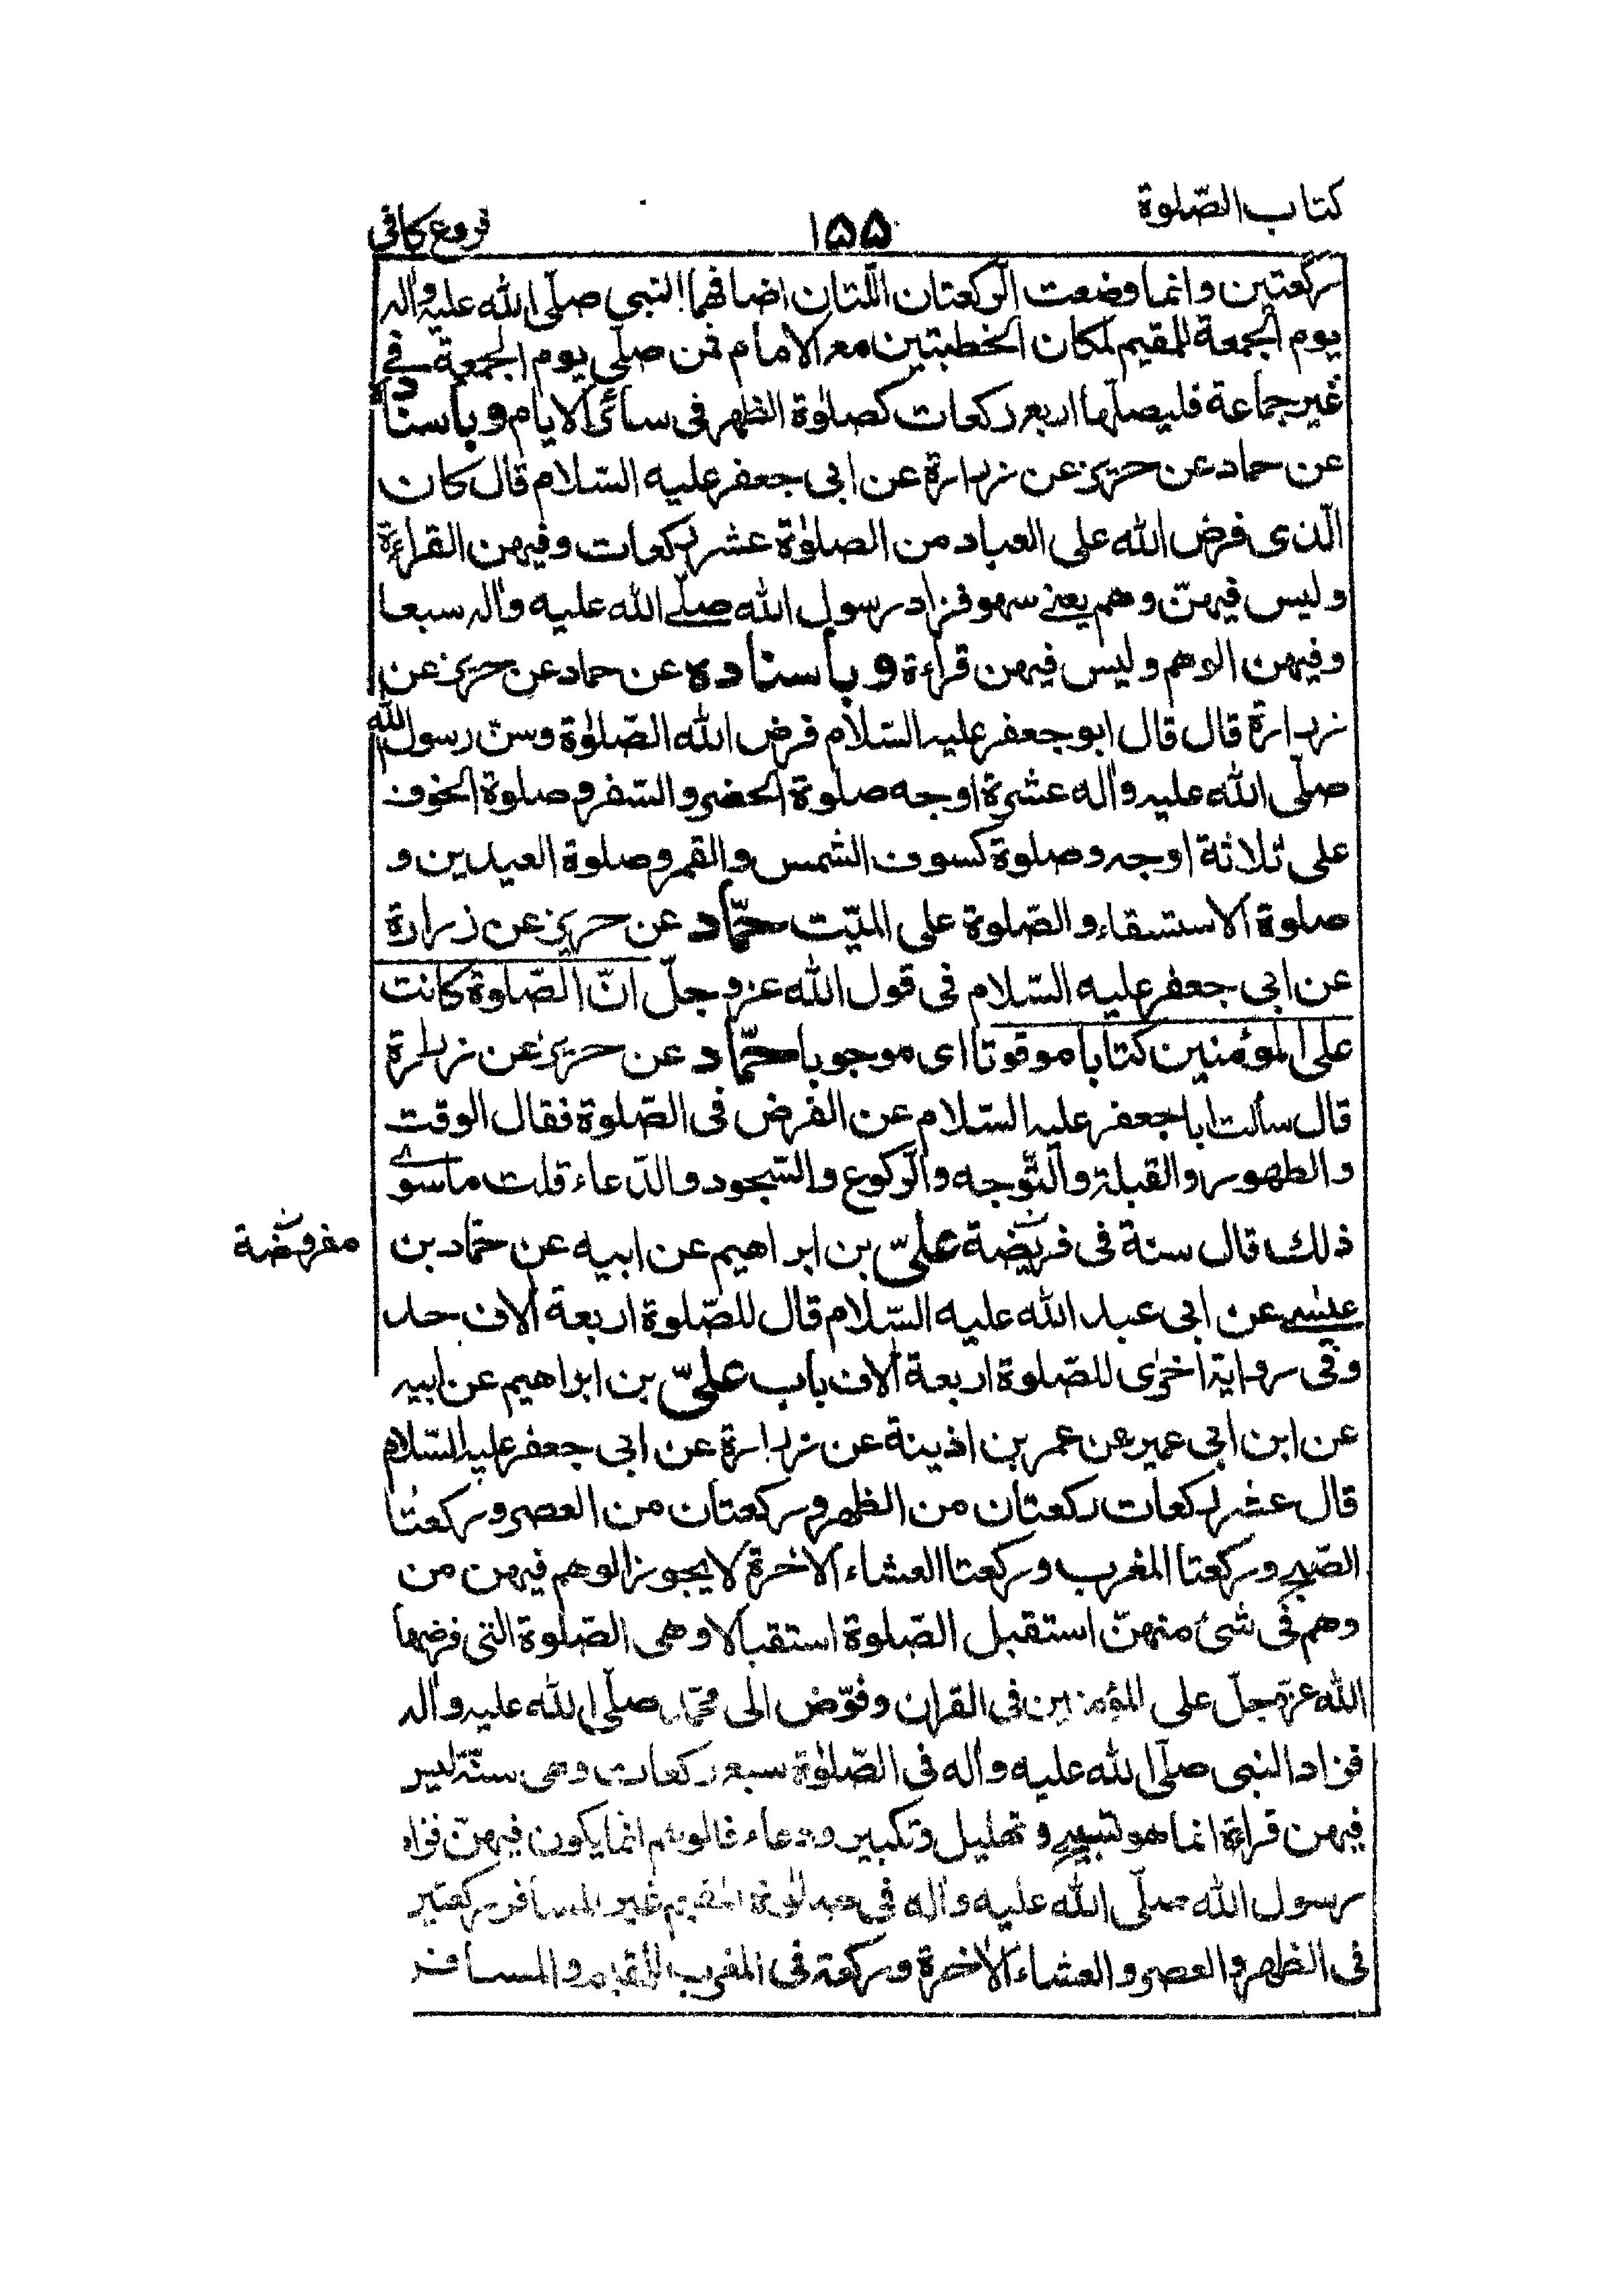 كتاب الصّلوة
١٥٥
فروع كافى
ركعتين وانما وضعت الركعتان اللّتان اضافهما النبى صلّى الله عليه واله
يوم الجمعة للمقيم لمكان الخطبتين مع الامام فمن صلّى يوم الجمعة فى
غير جماعة فليصلّها اربع ركعات كصلوٰة الظهر فى سائر الايام وباسناده
عن حماد عن حريز عن زرارة عن ابى جعفر عليه السّلام قال كان
الّذى فرض الله على العباد من الصلوٰة عشر ركعات وفيهن القراءة
وليس فيهنّ وهم يعنى سهو فزاد رسول الله صلّى الله عليه واله سبعا
وفيهن الوهم وليس فيهن قراءة وباسناده عن حماد عن حريز عن
زرارة قال قال ابو جعفر عليه السّلام فرض الله الصّلوٰة وسنّ رسول الله
صلّى الله عليه واله عشرة اوجه صلوة الحضر والسّفر وصلوة الخوف
على ثلاثة اوجه وصلوة كسوف الشمس والقمر وصلوة العيدين و
صلوة الاستسقاء والصّلوة على الميّت حمّاد عن حريز عن زرارة
عن ابى جعفر عليه السّلام فى قول الله عز وجلّ انّ الصّلوة كانت
على المؤمنين كتابا موقوتا اى موجوبا حمّاد عن حريز عن زرارة
قال سألت ابا جعفر عليه السّلام عن الفرض فى الصّلوة فقال الوقت
والطهور والقبلة والتّوجه والرّكوع والسّجود والدّعاء قلت ما سوى
ذلك قال سنة فى فريضة علىّ بن ابراهيم عن ابيه عن حمّاد بن
مفروضة
عيسى عن ابى عبد الله عليه السّلام قال للصّلوة اربعة الاف حد
وفى رواية اخرى للصّلوة اربعة الاف باب علىّ بن ابراهيم عن ابيه
عن ابن ابى عمير عن عمر بن اذينة عن زرارة عن ابى جعفر عليه السّلام
قال عشر ركعات ركعتان من الظهر وركعتان من العصر وركعتا
الصّبح وركعتا المغرب وركعتا العشاء الاخرة لا يجوز الوهم فيهن من
وهم فى شئ منهنّ استقبل الصّلوة استقبالا وهى الصّلوة التى فرضها
الله عز وجلّ على المؤمنين فى القران وفوّض الى محمّد صلّى الله عليه واله
فزاد النبى صلّى الله عليه واله فى الصّلوٰة سبع ركعات وهى سنّة ليس
فيهن قراءة انما هو تسبيح وتهليل وتكبير ودعاء فالوهم انما يكون فيهنّ فزاد
رسول الله صلّى الله عليه واله فى صلوة المقيم غير المسافر ركعتين
فى الظهر والعصر والعشاء الاخرة وركعة فى المغرب للمقيم والمسافر